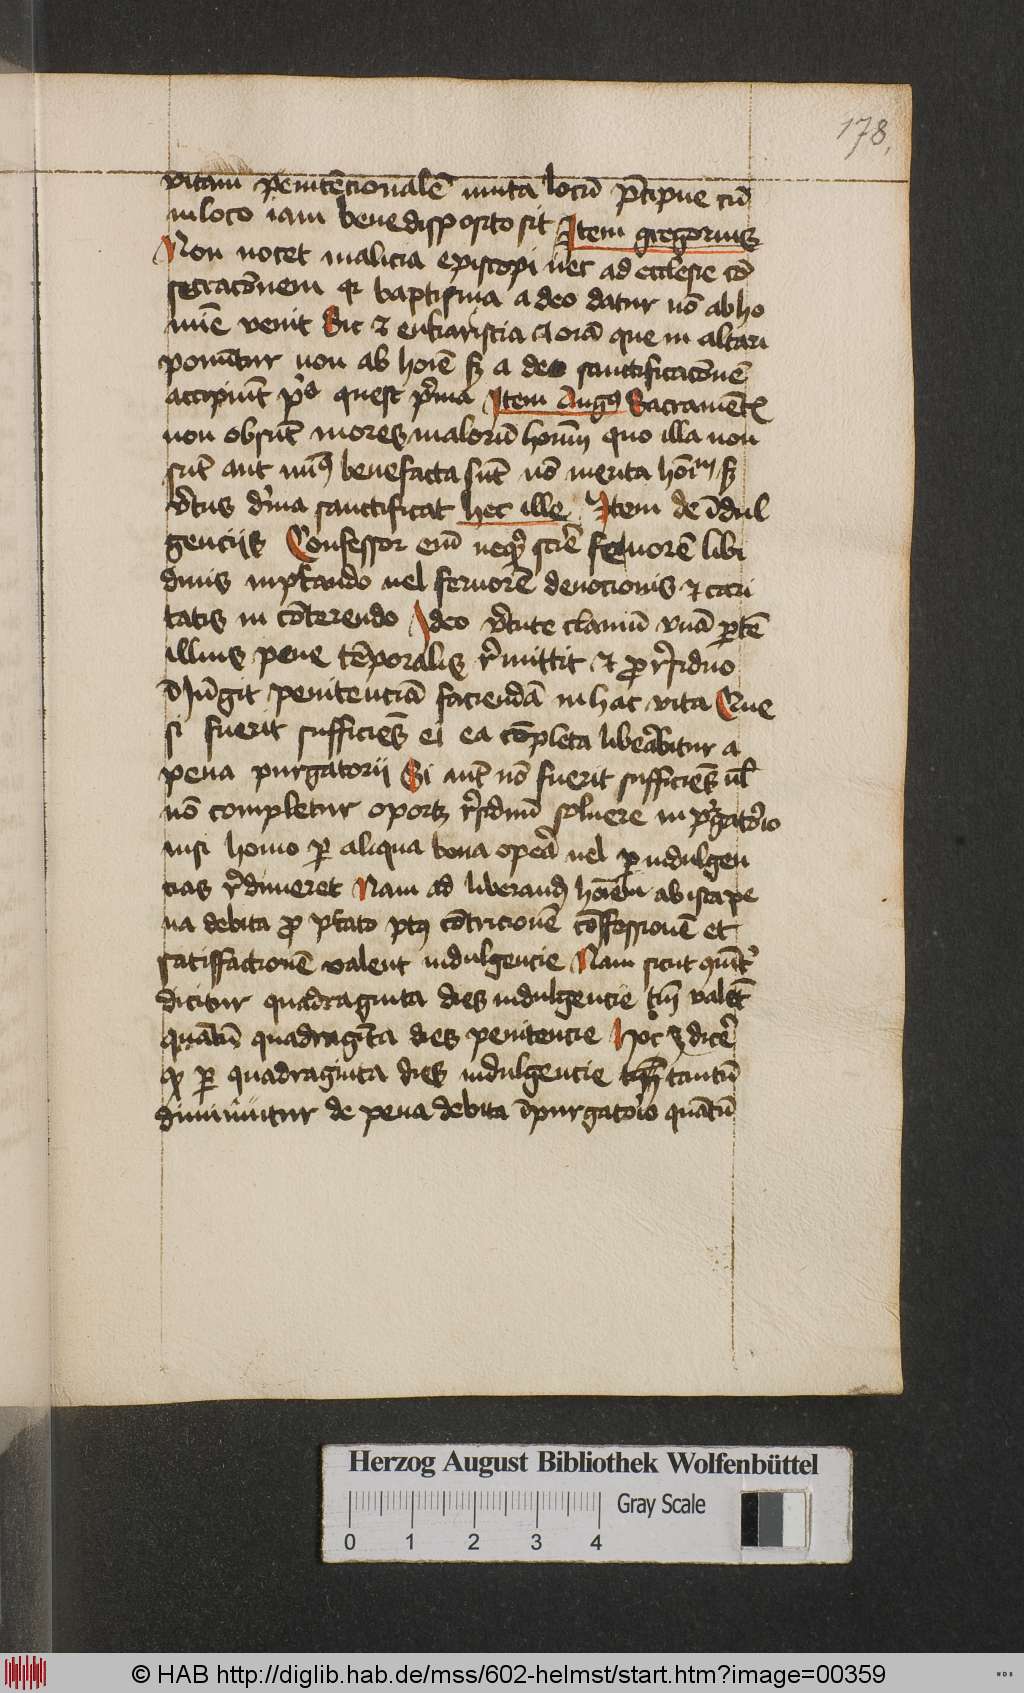 178
vitam penite̅cionale̅ muta locu̅ p̅cipue cu̅
in loco iam bene disposito sit Item gregorius
Non nocet malicia episcopi nec ad ecclesie co̅
secrac̅onem q̛ baptisma a deo datur no̅ ab ho
mi̅e venit Sic ⁊ eukaristia que in altari
ponu̅tur non ab hoi̅e sꝫ a deo sanctificac̅one̅
accipiu̅t quest p̛ma Item Augꝰ Sacrame̅tꝭ
non obsu̅t mores maloru̅ quo illa non
su̅t aut benefacta su̅t no̅ merita sꝫ
v̛tus d̛ina sanctificat hec ille Item de i̅dul
gencijs Confessor eni̅ fe uore̅ libi
dinis vel feruore̅ deuocionis ⁊ cari
tatis in co̅terendo Ideo v̛tute clauiu̅ vna̅ p̱te̅
illius pene te̅poralis r̛mittit ⁊ pro r̛siduo
i̅iu̅git penitencia̅ facienda̅ in hac vita Que
si fuerit sufficie̅s ei ea co̅pleta libe̅abitur a
pena purgatorij Si aut̅ no̅ fuerit sufficie̅s ul̛
no̅ completur oportꝫ r̛siduu̅ soluere in p̛gato̅io
nisi homo ꝑ aliqua bona ope̅a vel ꝑ indulgen
cias r̛dimeret Nam ad liberand̛ ab ista pe
na debita ꝓ pt̅cato co̅tricione̅ co̅fessione̅ et
satisfactione̅ valent indulgencie Nam sicut
dicitur quadraginta dies indulgencie tm̅ vale̅t
qua̅tu̅ quadragi̅ta dies penitencie Hoc ꝫ dice̅
ꝙ ꝑ quadraginta dies indulgencie tantu̅
diminuitur de pena debita i̅ purgato̅io qua̅tu̅
Herzog August Bibliothek Wolfenbüttel
Gray Scale
0 1 2 3 4
© HAB http://diglib.hab.de/mss/602-helmst/start.htm?image=00359